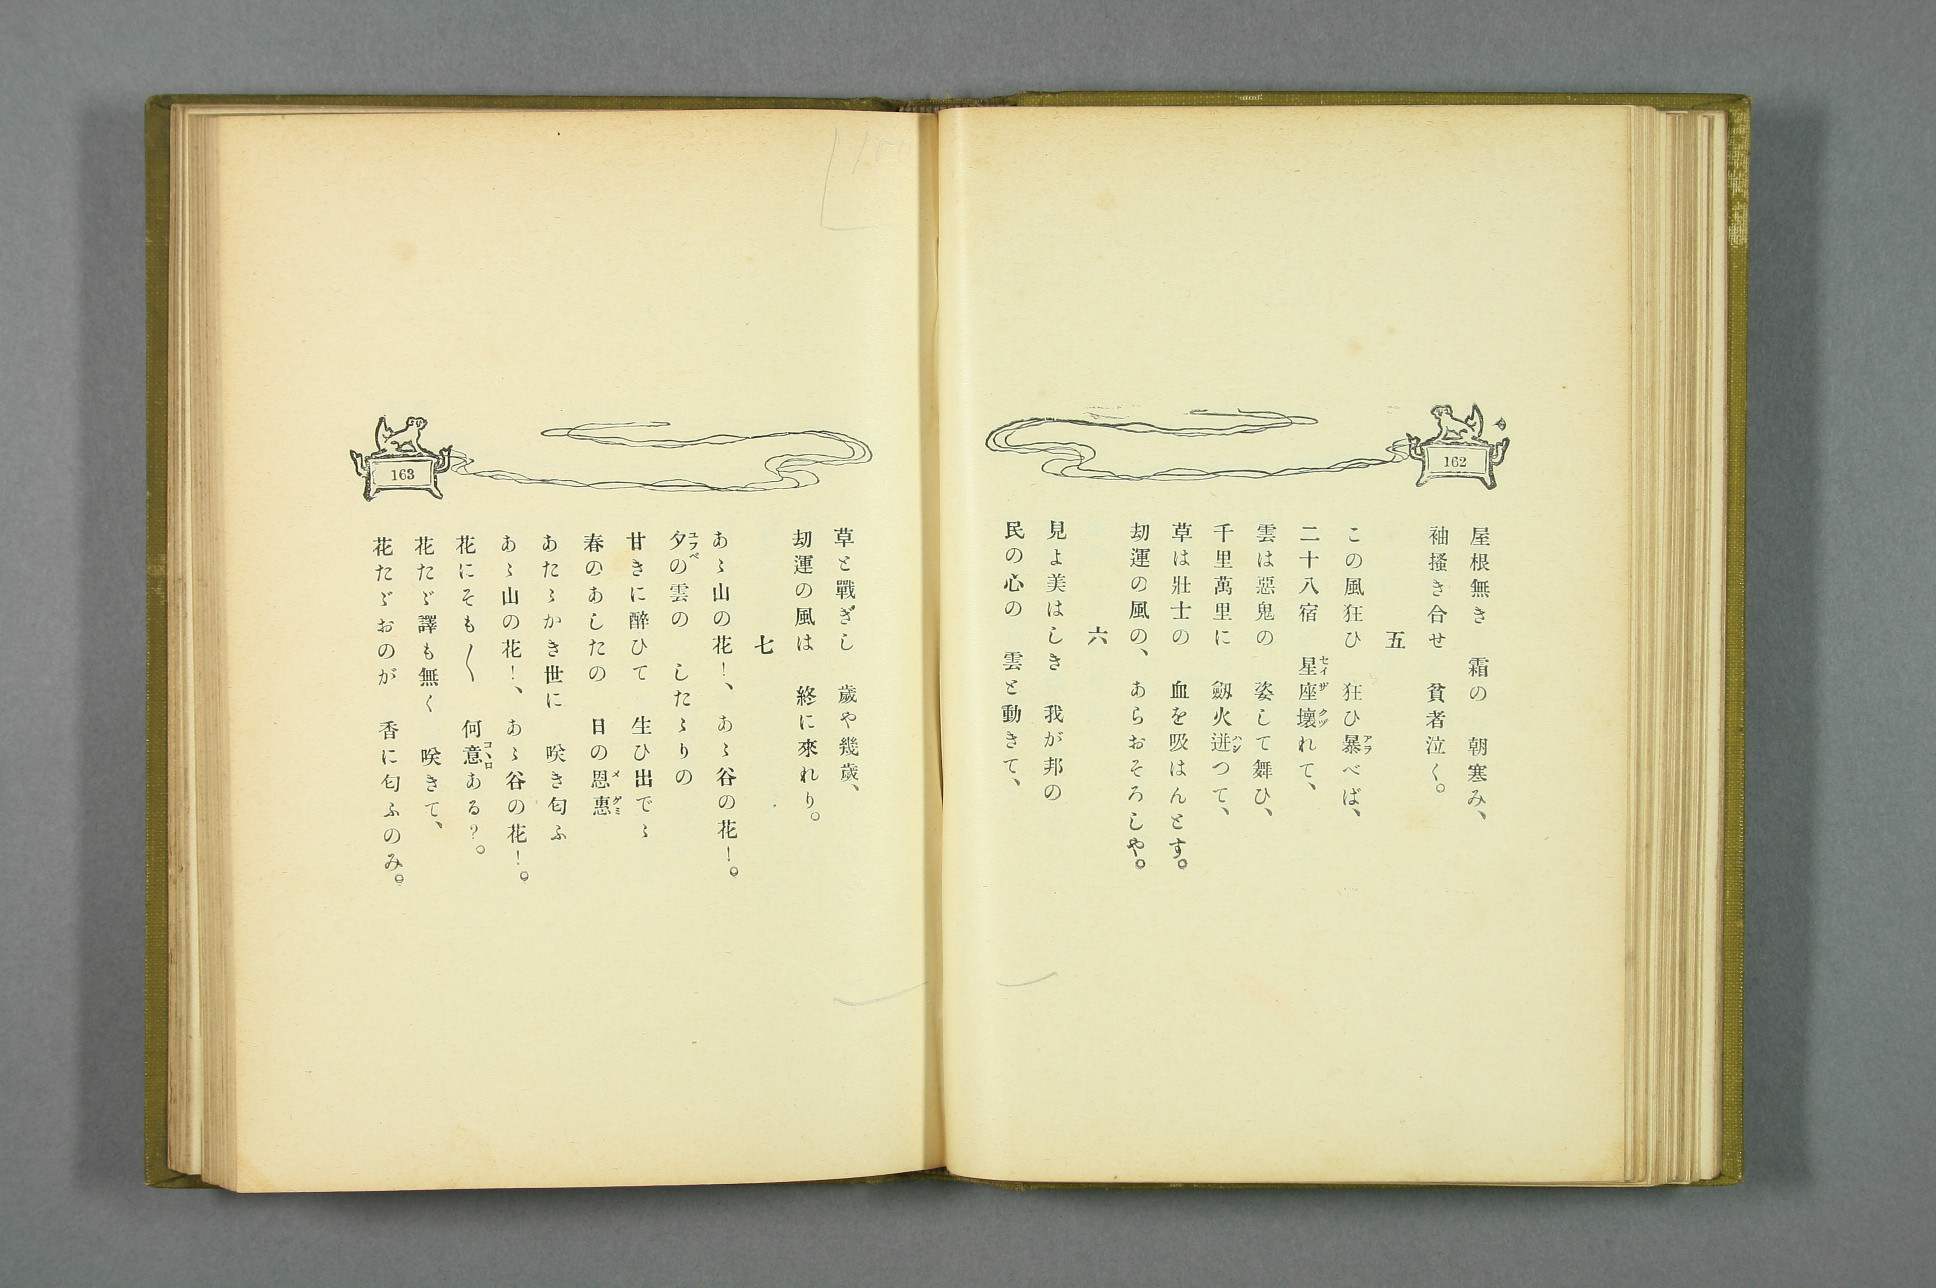 162
屋根無き　霜の　朝寒み、
袖搔き合せ　貧者泣く。
五
この風狂ひ　狂ひ暴べば、
二十八宿　星座壞れて、
雲は惡鬼の　姿して舞ひ、
千里萬里に　劔火迸つて、
草は壯士の　血を吸はんとす。
劫運の風の、　あらおそろしや。
六
見よ美はしき　我が邦の
民の心の　雲と動きて、
163
草と戰ぎし　歲や幾歲、
劫運の風は　終に來れり。
七
あゝ山の花！、　あゝ谷の花！。
夕の雲の　したゝりの
甘きに醉ひて　生ひ出でゝ
春のあしたの　日の恩惠
あたゝかき世に　咲き匂ふ
あゝ山の花！、　あゝ谷の花！。
花にそも〱　何意ある？。
花たゞ譯も無く　咲きて、
花たゞおのが　香に匂ふのみ。